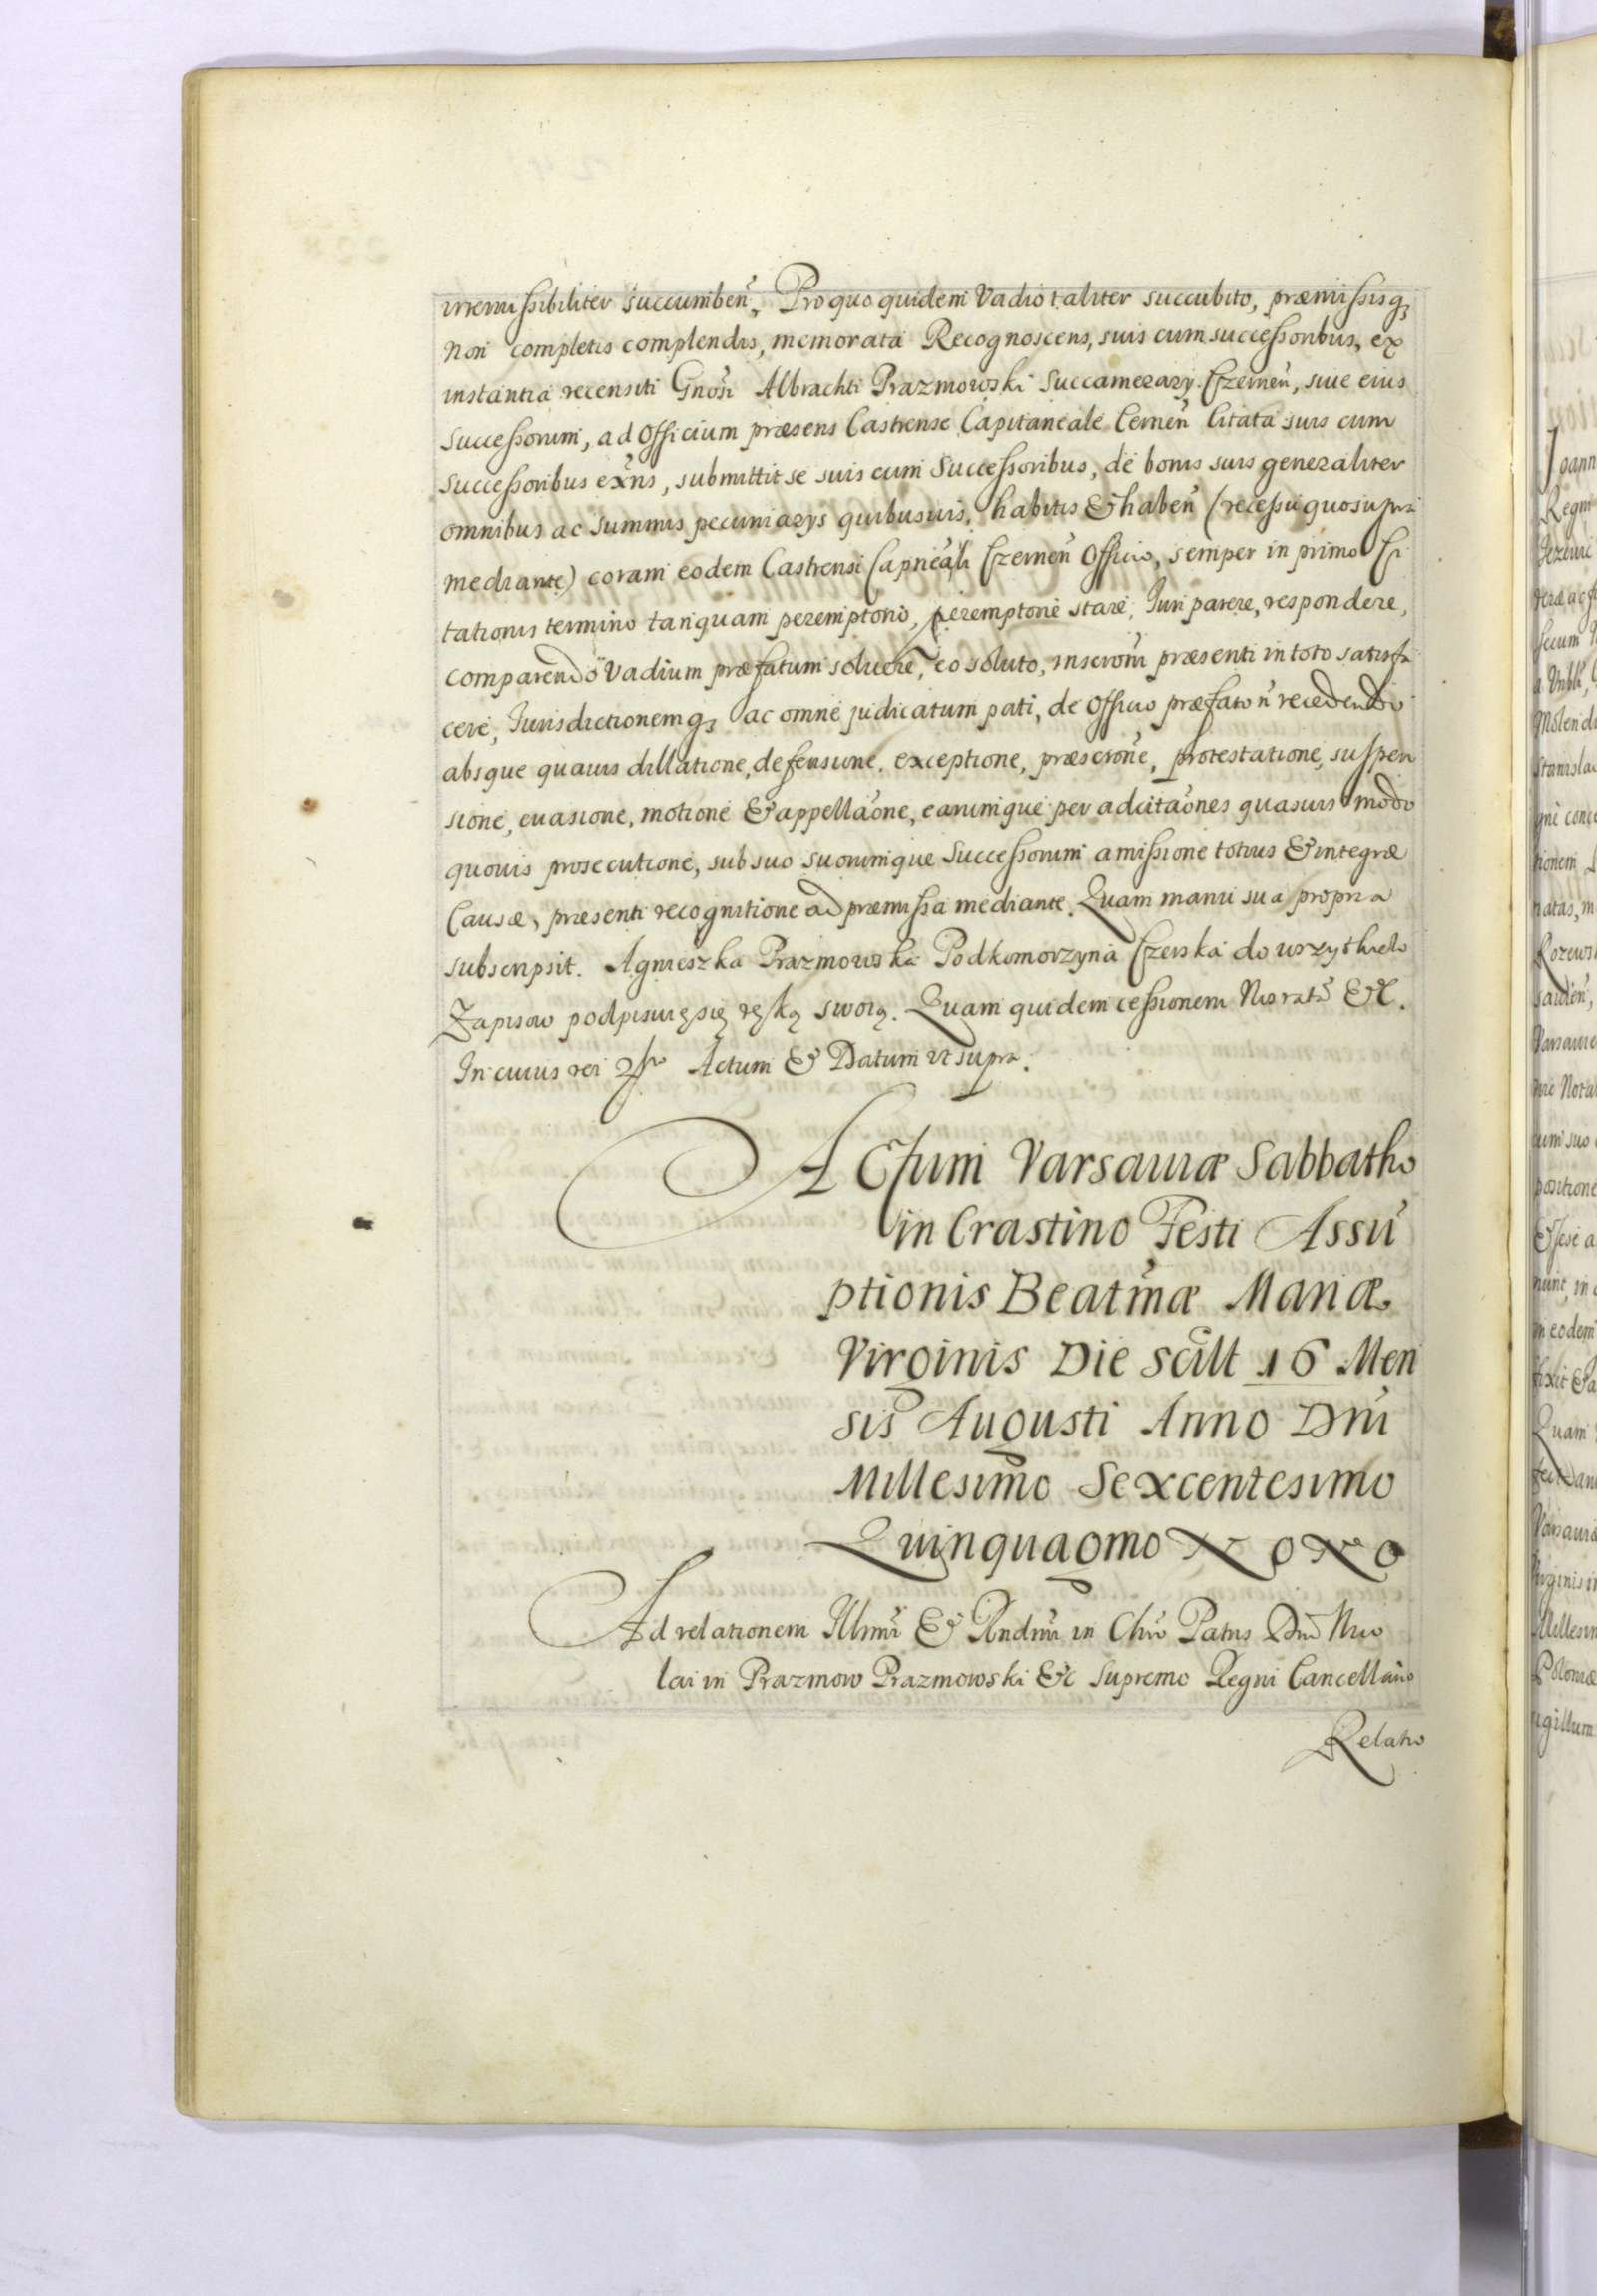 irremissibiliter succumben̄, Pro quo quidem Vadio taliter succubito, præmissisq₃
Non completis complendis, memorata Recognoscens, suis cum successoribus, ex
instantia recensiti Gnosi Albrachti Prazmowski Succamerary Czernen̄, siue eius
Successorum, ad Officium præsens Castrense Capitaneale Cernen̄ Citata suis cum
Successoribus exn̄s, submittit se suis cum Successoribus, de bonis suis generaliter
omnibus ac summis pecuniarys quibusuis, habitis & haben̄ (recessu quo supra
mediante) coram eodem Castrensi Capnēali Czernen̄ Officio, semper in primo Ci
tationis termino tanquam peremptorio, peremptorie stare, Iuri parere, respondere,
comparendo Vadium præfatum soluere, eo soluto, inscrōni præsenti in toto satisfa
cere, Iurisdictionemq₃ ac omne judicatum pati, de Officio præfato n̄ recedendo
absque quauis dillatione, defensione, exceptione, præscrōne, protestatione, suspen
sione, euasione, motione & appellaōne, earumque per adcitaōnes quasuis modo
quouis prosecutione, sub suo suorumque Successorum amissione totius & integræ
Causæ, præsenti recognitione ad præmissa mediante. Quam manu sua propria
subscripsit. Agnieszka Prazmowska Podkomorzyna Czerska do wszytkich
Zapisow podpisuię się ręką swoią. Quam quidem cessionem Nos ratā &c.
In cuius rei Actum & Datum vt supra.
Actum Varsauiæ Sabbatho
in Crastino Festi Assū
ptionis Beatmæ Mariæ
Virginis Die scilt 16 Men
sis Augusti Anno Dni
Millesimo Sexcentesimo
Quinquagmo Nono
Ad relationem Illmi & Rndmi in Chro Patris Dni Nico
lai in Prazmow Prazmowski &c Supremo Regni Cancellario
Relatio